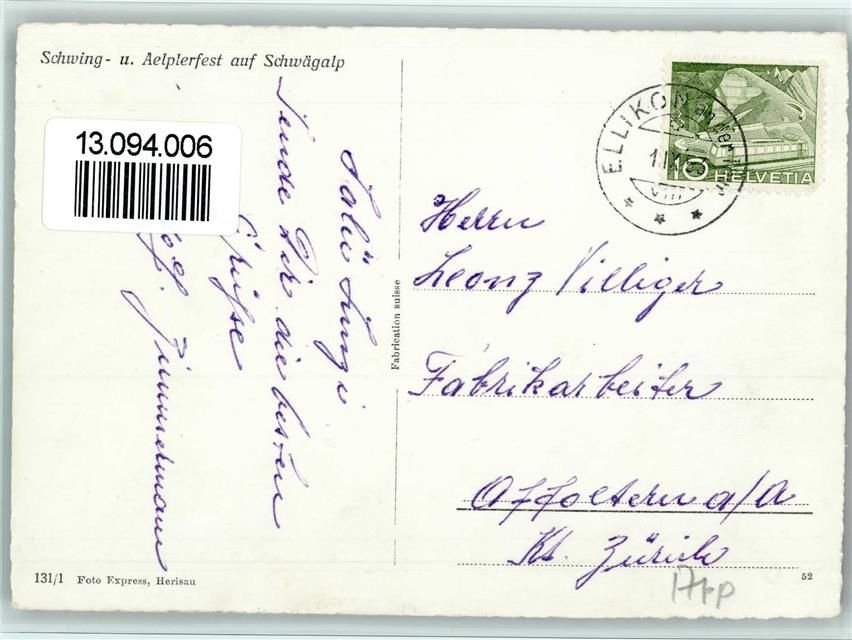 Schwing- u. Aelplerfest auf Schwägalp
13.094.006
Salü Lunzi
Sende Dir die besten
Grüsse
Zimmermann
Fabrication suisse
ELLIKON
10 HELVETIA
Herrn
Leonz Villiger
Fabrikarbeiter
Affoltern a/A
Kt. Zürich
131/1 Foto Express, Herisau
52